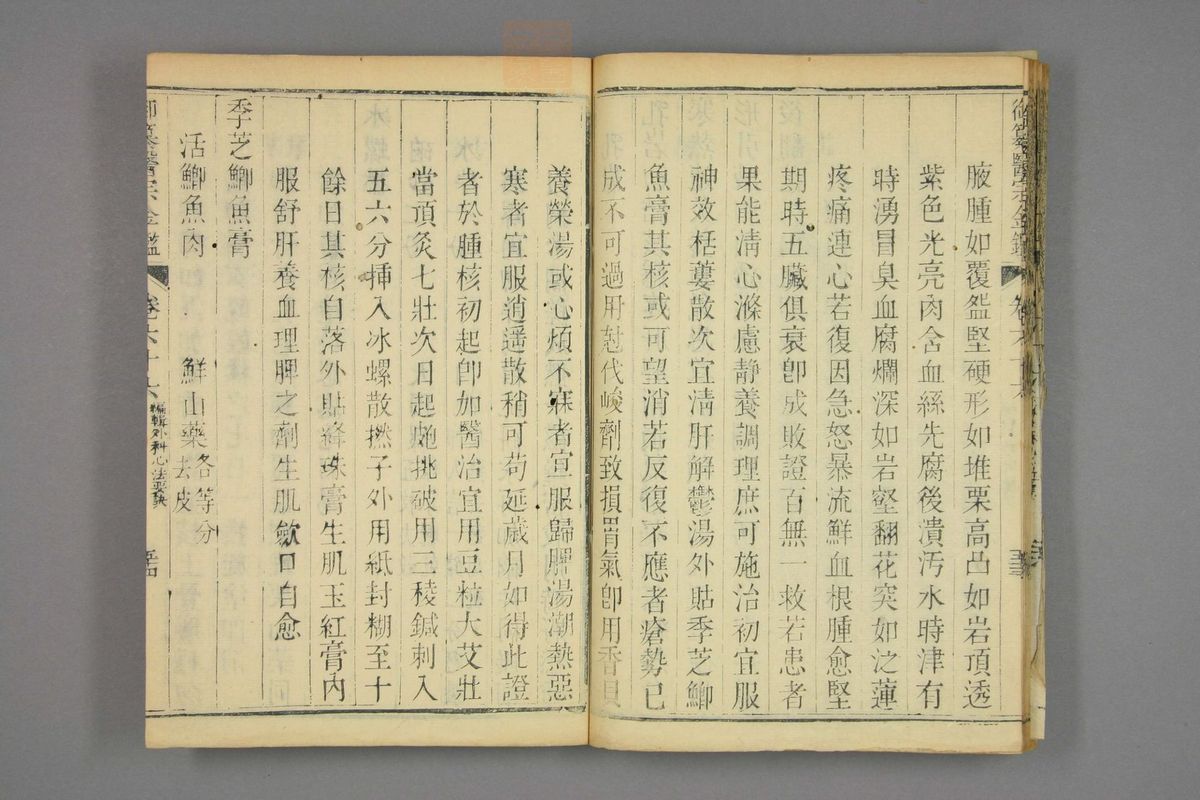 腋腫如覆盌堅硬形如堆栗高凸如岩頂透
紫色光亮肉含血絲先腐後潰汚水時津有
時湧冒臭血腐爛深如岩壑翻花突如泛蓮
疼痛連心若復因急怒暴流鮮血根腫愈堅
期時五臟俱衰卽成敗證百無一救若患者
果能淸心滌慮靜養調理庶可施治初宜服
神效栝蔞散次宜淸肝解鬱湯外貼季芝鯽
魚膏其核或可望消若反復不應者瘡勢已
成不可過用尅伐峻劑致損胃氣卽用香貝
養榮湯或心煩不寐者宜服歸脾湯潮熱惡
寒者宜服逍遥散稍可苟延歲月如得此證
者於腫核初起卽加醫治宜用豆粒大艾壯
當頂灸七壯次日起皰挑破用三稜鍼刺入
五六分揷入冰螺散撚子外用紙封糊至十
餘日其核自落外貼絳珠膏生肌玉紅膏內
服舒肝養血理脾之劑生肌歛口自愈
季芝鯽魚膏
活鯽魚肉 鮮山藥去皮各等分
御纂醫宗金鑑 卷六十六 編輯外科心法要訣